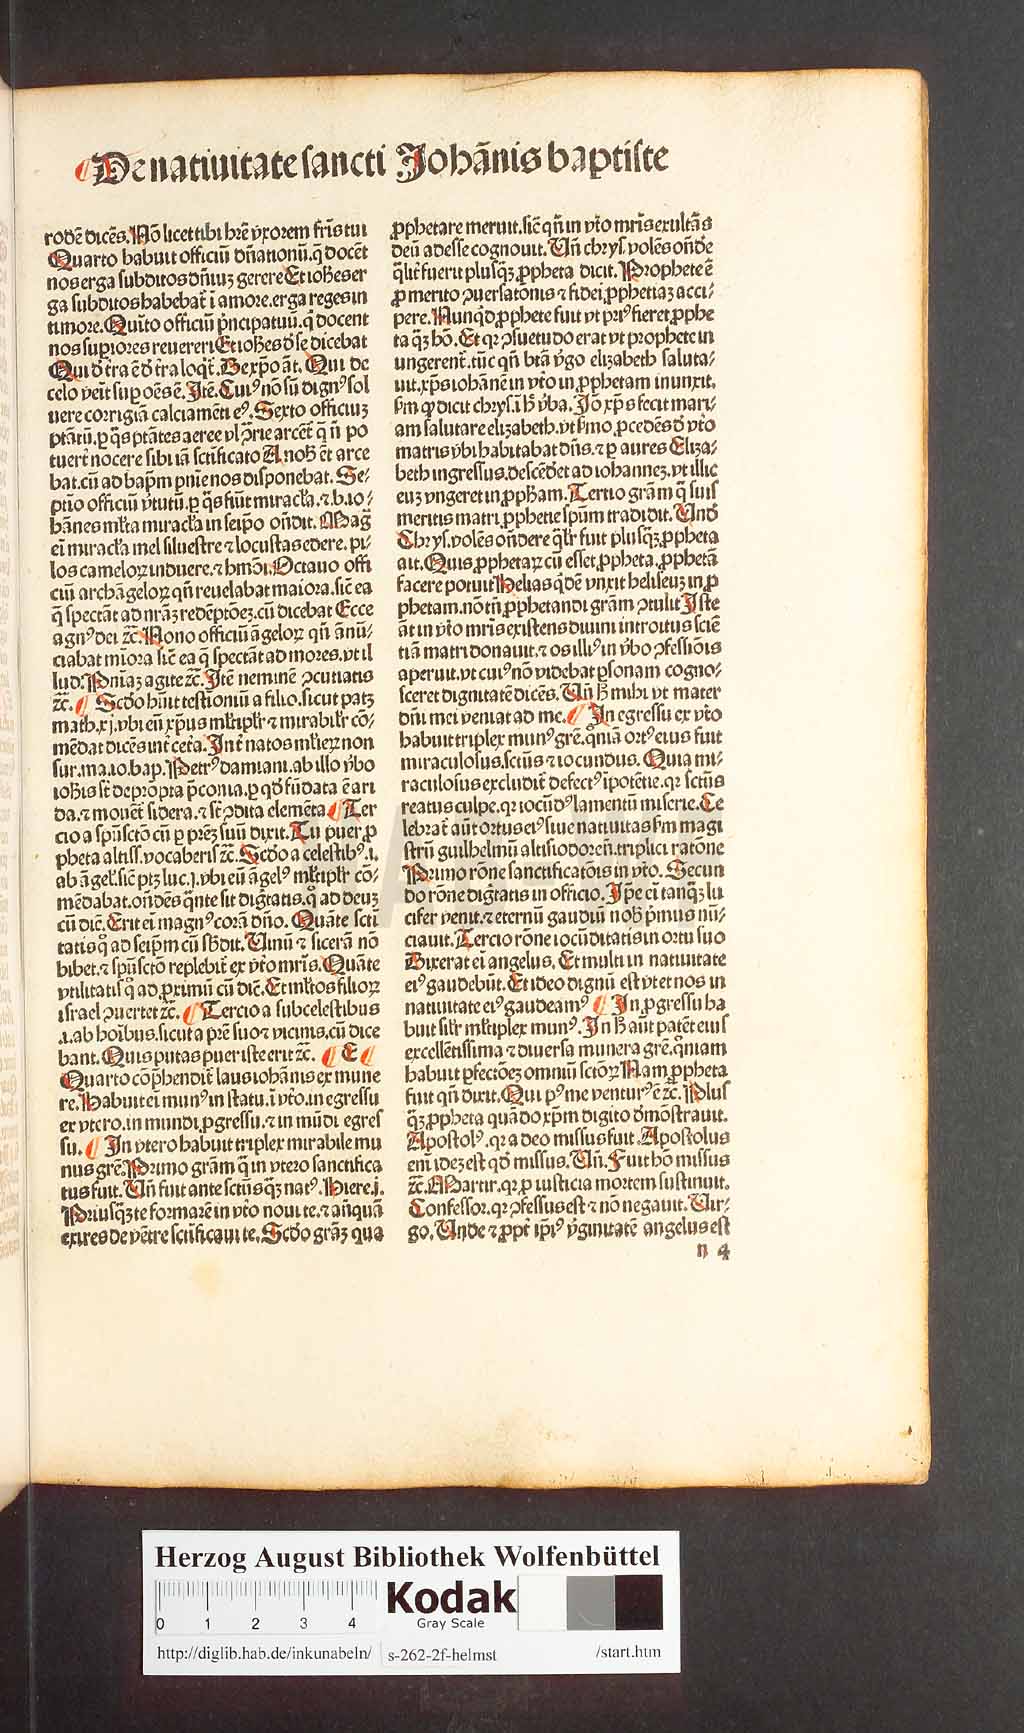 De natiuitate sancti Johānis baptiste
rodē dicēs. Nō licet tibi hr̄e vxorem fr̄is tui
Quarto habuit officiū dn̄ationū. q̄ docēt
nos erga subditos dn̄iuꝫ gerere Et ioh̄es er
ga subditos habebat᷑ ī amore. erga reges in
timore. Quīto officiū p̄ncipatuū. q̄ docent
nos supiores reuereri Et ioh̄es d̄ se dicebat
Qui d̄ t̄ra ē d̄ t̄ra loqt᷑. De xp̄o āt. Qui de
celo veīt sup oēs ē. Itē. Cuiꝰ nō sū dignꝰ sol
uere corrigiā calciamēti eꝰ. Sexto officiuꝫ
ptātū. p q̄s ptātes aeree vl̓ p̄rie arcēt᷑ q̄ n̄ po
tuer̄t nocere sibi iā sctīficato A nob̄ ēt arce
bat. cū ad bap̄m pn̄ie nos disponebat. Se⸗
ptīo officiū v̓tutū. p q̄s fiūt miracl̓a. ⁊ b. io⸗
hānes ml̓ta miracl̓a in seip̄o on̄dit. Mag̃
ei̅ miracl̓a mel siluestre ⁊ locustas edere. pi⸗
los cameloꝝ induere. ⁊ hm̄ōi. Octauo offi
ciū archāgeloꝝ qn̄ reuelabat maiora. sic̄ ea
q̄ spectāt ad nr̄aꝫ redēptōeꝫ. cū dicebat Ecce
agnꝰ dei ⁊c̄. Nono officiū āgeloꝝ qn̄ ānū⸗
ciabat mīora sic̄ ea q̄ spectāt ad mores. vt il
lud. Pn̄iaꝫ agite ⁊c̄. Itē neminē ꝯcutiatis
⁊c̄. ¶ Scd̄o hūit testioniū a filio. sicut patꝫ
math. xj. vbi eū xp̄us ml̓tipl̓r ⁊ mirabil̓r cō⸗
mēdat dicēs int᷑ cet̓a. Int᷑ natos ml̓ieꝝ non
sur. ma. io. bap. Petrꝰ damiani. ab illo v̓bo
ioh̄is st̄ deprōpta p̄conia. p qd̄ fūdata ē ari
da. ⁊ mouēt᷑ sidera. ⁊ st̄ ꝯdita elemēta ¶ Ter
cio a spūsctō cū p prēꝫ suū dixit. Tu puer ꝓ
pheta altiss. vocaberis ⁊c̄. Scd̄o a celestibꝰ. i.
ab āgel̓. sic̄ ptꝫ luc. j. vbi eū āgelꝰ ml̓tipl̓r cō⸗
mēdabat. on̄dēs q̄nte sit dig̃tatis. q̊ ad deuꝫ
cū dic̄. Erit ei̅ magnꝰ corā dn̄o. Quāte scti̅
tatis q̊ ad seip̄m cū sb̄dit. Uinū ⁊ sicerā nō
bibet. ⁊ spūsctō replebit᷑ ex vt̓o mr̄is. Quāte
vtilitatis q̊ ad ꝓximū cū dic̄. Et ml̓tos filioꝝ
israel ꝯuertet ⁊c̄. ¶ Tercio a subcelestibus
.i. ab hoībus. sicut a pr̄e suo ⁊ vicinis. cū dice
bant. Quis putas puer iste erit ⁊c̄. ¶ E ¶
Quarto cōp̄hendit᷑ laus iohānis ex mune
re. Habuit ei̅ munꝰ in statu. ī vt̓o. in egressu
ex vtero. in mundi. ꝓgressu. ⁊ in mūdi egres
su. ¶ In vtero habuit triplex mirabile mu
nus gr̄e. Primo gr̄am q̄ in vtero sanctifica
tus fuit. Un̄ fuit ante sctūs q̄ꝫ natꝰ. Hiere. j.
Priusq̄ꝫ te formarē in vt̓o noui te. ⁊ anq̄uā
exires de vētre sctīficaui te. Scd̄o gr̄aꝫ qua
ꝓphetare meruit. sic̄ qn̄ in vt̓o mr̄is exultās
deū adesse cognouit. Un̄ chrys. volēs on̄dē
q̄lit᷑ fuerit plusq̄ꝫ ꝓpheta dicit. Prophete ē
ꝓ merito ꝯuersatonis ⁊ fidei. ꝓphetiaꝫ acci⸗
pere. Nunqd̄ ꝓphete fuit vt priꝰ fieret ꝓphe
ta q̄ꝫ hō. Et qꝛ ꝯsuetudo erat vt prophete in
ungerent᷑. tūc qn̄ btā v̓go elizabeth saluta⸗
uit. xp̄s iohānē in vt̓o in ꝓphetam inunxit.
ẜm qd̄ dicit chrys. ī h̄ v̓ba. Iō xp̄s fecit mari⸗
am salutare elizabeth. vt ẜmo ꝓcedēs d̄ vt̓o
matris vbi habitabat dn̄s. ⁊ p aures Eliza⸗
beth ingressus. descēdet ad iohanneꝫ. vt illic
euꝫ vngeret in ꝓph̄am. Tertio gr̄am q̄ suis
meritis matri ꝓphetie spūm tradidit. Und̄
Chrys. volēs on̄dere q̄l̓r fuit plusq̄ꝫ ꝓpheta
ait. Quis ꝓphetaꝝ cū esset ꝓpheta. ꝓphetā
facere potuit Helias qd̄ē vnxit heliseuꝫ in ꝓ
phetam. nō tn̄ ꝓphetandi gr̄am ꝯtulit Iste
āt in vt̓o mr̄is existens diuini introitus sciē
tiā matri donauit. ⁊ os illiꝰ in v̓bo ꝯfessiōis
aperuit. vt cuiꝰ nō videbat psonam cogno⸗
sceret dignitatē dicēs. Un̄ h̄ mihi vt mater
dn̄i mei veniat ad me. ¶ In egressu ex vt̓o
habuit triplex munꝰ gr̄e. qn̄iā ortꝰ eius fuit
miraculosus. sctūs ⁊ iocundus. Quia mi⸗
raculosus excludit᷑ defectꝰ īpotētie. qꝛ sctūs
reatus culpe. qꝛ iocūdꝰ lamentū miserie. Ce
lebrat᷑ aūt ortus eiꝰ siue natiuitas ẜm magi
strū guilhelmū altisiodoreñ. triplici ratōne
Primo rōne sanctificatōis in vt̓o. Secun
do rōne dig̃tatis in officio. Ip̄e ei̅ tanq̄ꝫ lu
cifer venit. ⁊ eternū gaudiū nob̄ p̄mus nū⸗
ciauit. Tercio rōne iocūditatis in ortu suo
Dixerat ei̅ angelus. Et multi in natiuitate
eiꝰ gaudebūt. Et ideo dignū est vt et nos in
natiuitate eiꝰ gaudeamꝰ ¶ In ꝓgressu ha
buit sil̓r ml̓tiplex munꝰ. In h̄ aut̄ patēt eius
excellētissima ⁊ diuersa munera gr̄e. qm̄iam
habuit pfectōeꝫ omniū sctōꝝ Nam ꝓpheta
fuit qn̄ dixit. Qui pꝰ me venturꝰ ē ⁊c̄. Plus
q̄ꝫ ꝓpheta quādo xp̄m digito dmōstrauit.
Apostolꝰ. qꝛ a deo missus fuit. Apostolus
eni̅ ideꝫ est qd̄ missus. Un̄. Fuit hō missus
⁊c̄. Martir. qꝛ ꝓ iusticia mortem sustinuit.
Confessor. qꝛ ꝯfessus est ⁊ nō negauit. Uir⸗
go. Unde ⁊ ꝓpt᷑ ip̄iꝰ v̓ginitatē angelus est
n 4
Herzog August Bibliothek Wolfenbüttel
0 1 2 3 4
Kodak
Gray Scale
http://diglib.hab.de/inkunabeln/ s-262-2f-helmst /start.htm